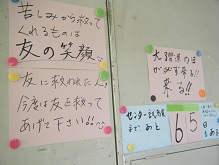 苦しみから救って
くれるものは
友の笑顔な
友に救われたん!
今度は友を救って
あげて下さい!!~
大躍進の日
が必ず来る!!
来る!!
センター試験
まで、あと
65
日